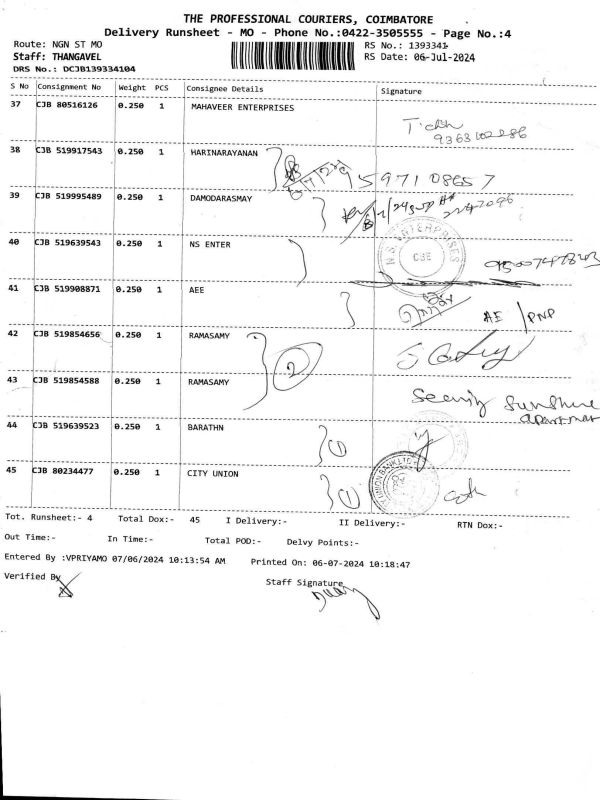 THE PROFESSIONAL COURIERS, COIMBATORE
Delivery Runsheet - MO - Phone No.:0422-3505555 - Page No.:4
Route: NGN ST MO RS No.: 1393341
Staff: THANGAVEL RS Date: 06-Jul-2024
DRS No.: DCJB139334104
S No Consignment No Weight PCS Consignee Details Signature
37 CJB 80516126 0.250 1 MAHAVEER ENTERPRISES
38 CJB 519917543 0.250 1 HARINARAYANAN
5971 08657
39 CJB 519995489 0.250 1 DAMODARASMAY
40 CJB 519639543 0.250 1 NS ENTER
N.S. ENTERPRISES
CBE
41 CJB 519908871 0.250 1 AEE
AE / PNP
42 CJB 519854656 0.250 1 RAMASAMY
2
43 CJB 519854588 0.250 1 RAMASAMY
Security Sunshine
apartment
44 CJB 519639523 0.250 1 BARATHN
1
45 CJB 80234477 0.250 1 CITY UNION
1
Tot. Runsheet:- 4 Total Dox:- 45 I Delivery:- II Delivery:- RTN Dox:-
Out Time:- In Time:- Total POD:- Delvy Points:-
Entered By :VPRIYAMO 07/06/2024 10:13:54 AM Printed On: 06-07-2024 10:18:47
Verified By
Staff Signature